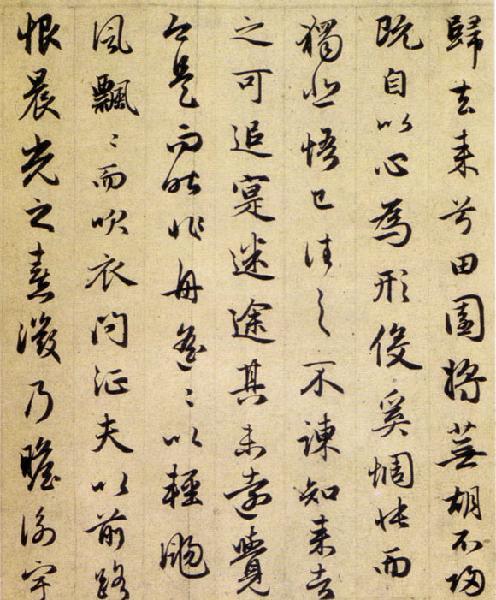 歸去来兮田園将蕪胡不歸
既自以心為形役奚惆悵而
獨悲悟已往之不諫知来者
之可追寔迷途其未遠覺
今是而昨非舟遥〻以輕颺
風飄〻而吹衣問征夫以前路
恨晨光之熹微乃瞻衡宇